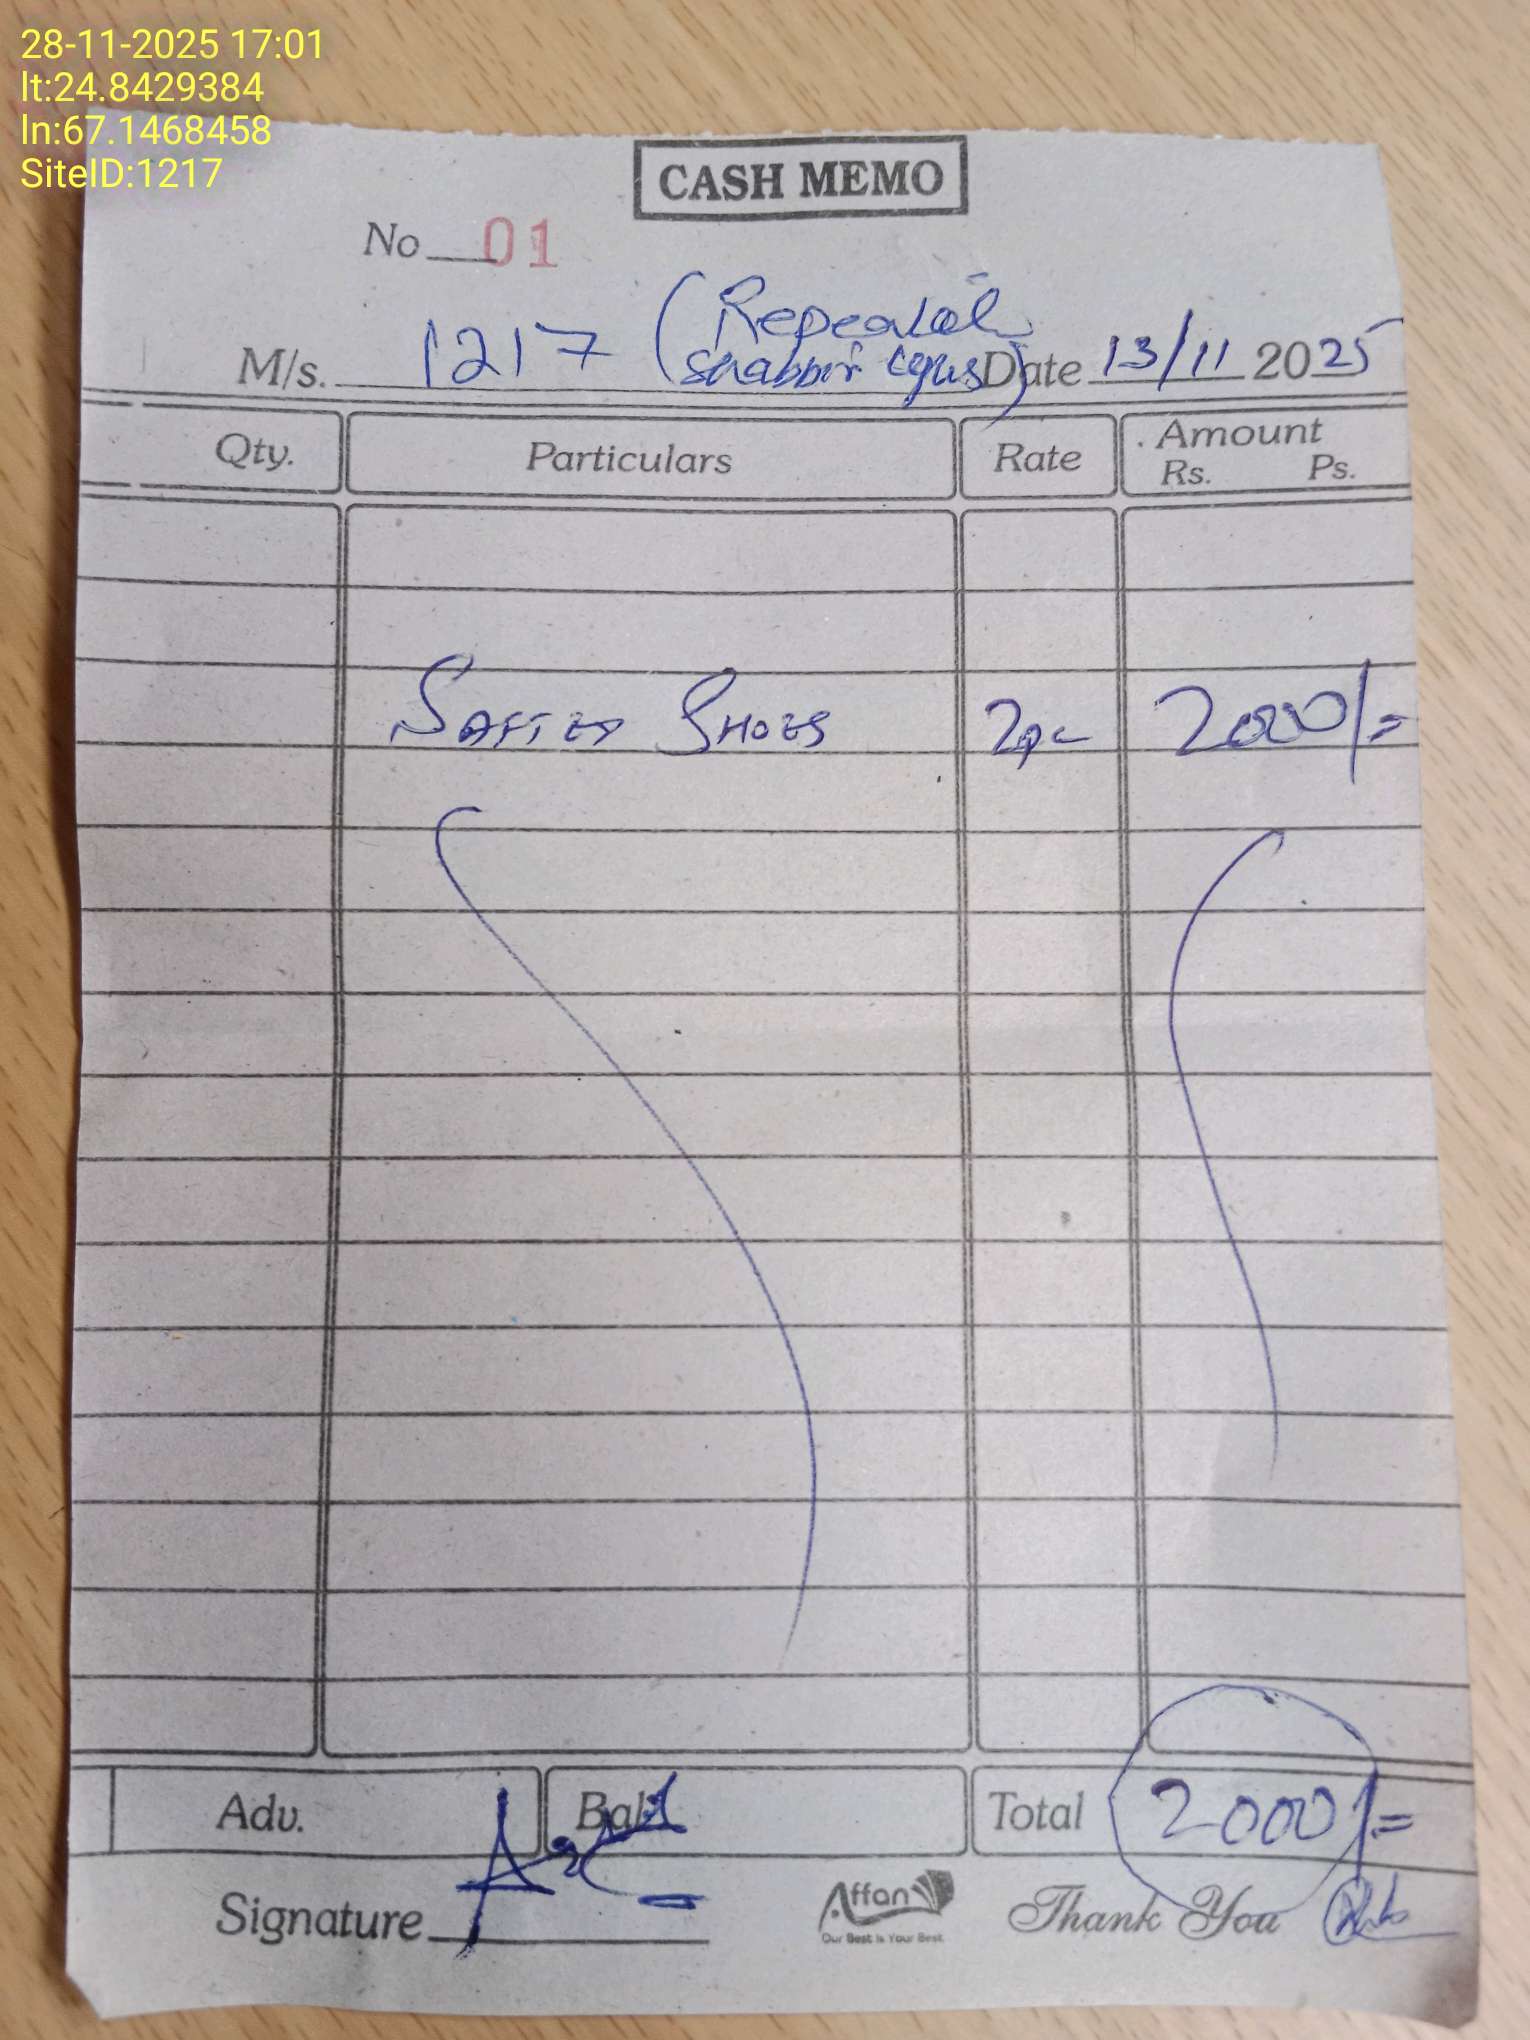 28-11-2025 17:01
lt:24.8429384
ln:67.1468458
SiteID:1217
CASH MEMO
No 01
M/s. 1217 (
Shabbir Date 13/11 2025
Qty. Particulars Rate Amount
Rs. Ps.
SAFTEY SHOES 2pc 2000/=
Adv. Bal. Total 2000/=
Signature Affan Thank You
Our Best Is Your Best.